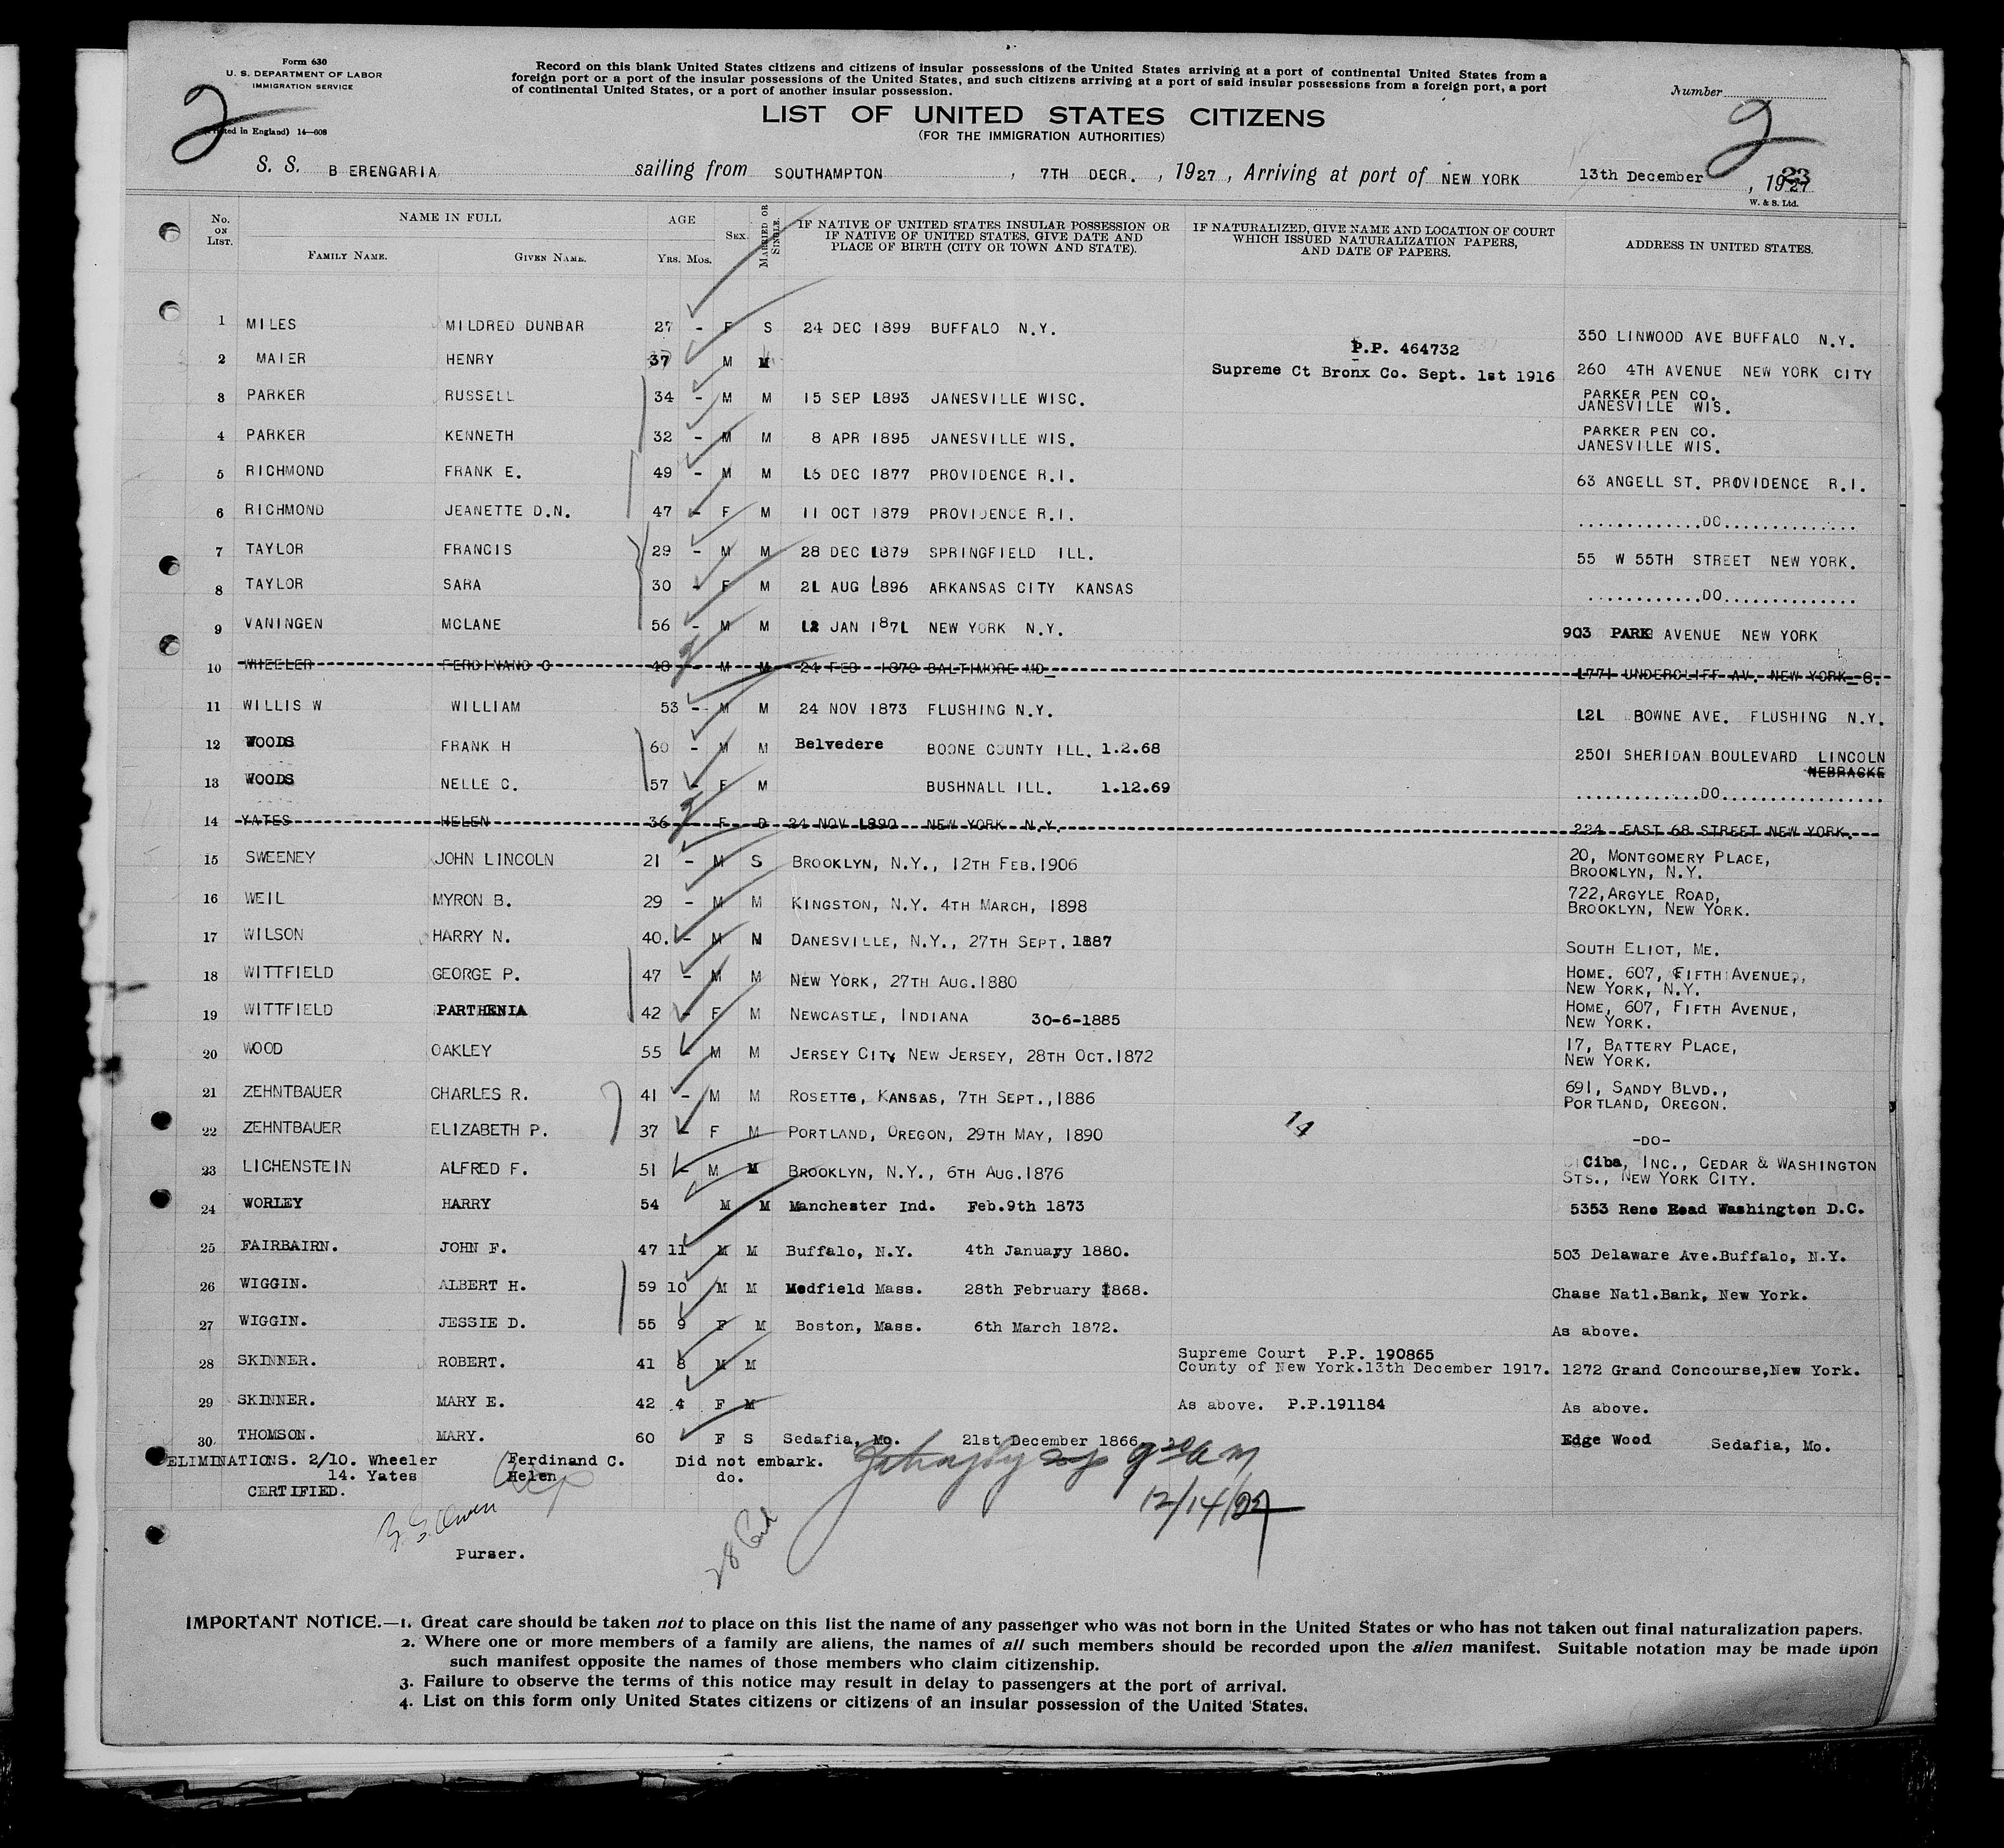 Form 630
U. S. DEPARTMENT OF LABOR
IMMIGRATION SERVICE
2
in England) 14—608
Record on this blank United States citizens and citizens of insular possessions of the United States arriving at a port of continental United States from a
foreign port or a port of the insular possessions of the United States, and such citizens arriving at a port of said insular possessions from a foreign port, a port
of continental United States, or a port of another insular possession.
Number
2
LIST OF UNITED STATES CITIZENS
(FOR THE IMMIGRATION AUTHORITIES)
S. S. B ERENGARIA sailing from SOUTHAMPTON , 7TH DECR. , 1927 , Arriving at port of NEW YORK 13th December , 1927
23
W. & S. Ltd.
No. ON LIST. NAME IN FULL AGE SEX. MARRIED OR SINGLE. IF NATIVE OF UNITED STATES INSULAR POSSESSION OR IF NATIVE OF UNITED STATES, GIVE DATE AND PLACE OF BIRTH (CITY OR TOWN AND STATE). IF NATURALIZED, GIVE NAME AND LOCATION OF COURT WHICH ISSUED NATURALIZATION PAPERS, AND DATE OF PAPERS. ADDRESS IN UNITED STATES.
FAMILY NAME. GIVEN NAME. YRS. MOS.
1 MILES MILDRED DUNBAR 27 - F S 24 DEC 1899 BUFFALO N.Y. 350 LINWOOD AVE BUFFALO N.Y.
2 MAIER HENRY 37 M M P.P. 464732
Supreme Ct Bronx Co. Sept. 1st 1916 260 4TH AVENUE NEW YORK CITY
3 PARKER RUSSELL 34 - M M 15 SEP L893 JANESVILLE WISC. PARKER PEN CO.
JANESVILLE WIS.
4 PARKER KENNETH 32 - M M 8 APR 1895 JANESVILLE WIS. PARKER PEN CO.
JANESVILLE WIS.
5 RICHMOND FRANK E. 49 - M M L6 DEC 1877 PROVIDENCE R.I. 63 ANGELL ST. PROVIDENCE R.I.
6 RICHMOND JEANETTE D.N. 47 - F M 11 OCT 1879 PROVIDENCE R.I. .............DO..............
7 TAYLOR FRANCIS 29 - M M 28 DEC L879 SPRINGFIELD ILL. 55 W 55TH STREET NEW YORK.
8 TAYLOR SARA 30 - F M 2L AUG L896 ARKANSAS CITY KANSAS ............DO..............
9 VANINGEN MCLANE 56 - M M L2 JAN 187L NEW YORK N.Y. 903 PARK AVENUE NEW YORK
10 WHEELER FERDINAND C 48 - M M 24 FEB 1879 BALTIMORE MD 1771 UNDERCLIFF AV. NEW YORK C.
11 WILLIS W WILLIAM 53 - M M 24 NOV 1873 FLUSHING N.Y. L2L BOWNE AVE. FLUSHING N.Y.
12 WOODS FRANK H 60 - M M Belvedere BOONE COUNTY ILL. 1.2.68 2501 SHERIDAN BOULEVARD LINCOLN
NEBRACKE
13 WOODS NELLE C. 57 - F M BUSHNALL ILL. 1.12.69 .............DO.................
14 YATES HELEN 36 - F D 24 NOV L890 NEW YORK N.Y. 224 EAST 68 STREET NEW YORK.
15 SWEENEY JOHN LINCOLN 21 - M S BROOKLYN, N.Y., 12TH FEB.1906 20, MONTGOMERY PLACE,
BROOKLYN, N.Y.
16 WEIL MYRON B. 29 - M M KINGSTON, N.Y. 4TH MARCH, 1898 722,ARGYLE ROAD,
BROOKLYN, NEW YORK.
17 WILSON HARRY N. 40. - M M DANESVILLE, N.Y., 27TH SEPT.1887 SOUTH ELIOT, ME.
18 WITTFIELD GEORGE P. 47 - M M NEW YORK, 27TH AUG.1880 HOME. 607, FIFTH AVENUE,,
NEW YORK, N.Y.
19 WITTFIELD PARTHENIA 42 - F M NEWCASTLE, INDIANA 30-6-1885 HOME, 607, FIFTH AVENUE,
NEW YORK.
20 WOOD OAKLEY 55 - M M JERSEY CITY NEW JERSEY, 28TH OCT.1872 17, BATTERY PLACE,
NEW YORK.
21 ZEHNTBAUER CHARLES R. 41 - M M ROSETTe, KANSAS, 7TH SEPT.,1886 691, SANDY BLVD.,
PORTLAND, OREGON.
22 ZEHNTBAUER ELIZABETH P. 37 - F M PORTLAND, OREGON, 29TH MAY, 1890 14 -DO-
23 LICHENSTEIN ALFRED F. 51 - M M BROOKLYN, N.Y., 6TH AUG.1876 Ciba, INC., CEDAR & WASHINGTON
STS., NEW YORK CITY.
24 WORLEY HARRY 54 M M Manchester Ind. Feb.9th 1873 5353 Reno Road Washington D.C.
25 FAIRBAIRN. JOHN F. 47 11 M M Buffalo, N.Y. 4th January 1880. 503 Delaware Ave.Buffalo, N.Y.
26 WIGGIN. ALBERT H. 59 10 M M Medfield Mass. 28th February 1868. Chase Natl.Bank, New York.
27 WIGGIN. JESSIE D. 55 9 F M Boston, Mass. 6th March 1872. As above.
28 SKINNER. ROBERT. 41 8 M M Supreme Court P.P. 190865
County of New York.13th December 1917. 1272 Grand Concourse,New York.
29 SKINNER. MARY E. 42 4 F M As above. P.P.191184 As above.
30. THOMSON. MARY. 60 F S Sedafia, Mo. 21st December 1866 Edge Wood Sedafia, Mo.
ELIMINATIONS. 2/10. Wheeler Ferdinand C. Did not embark.
14. Yates Helen do.
CERTIFIED.
12/14/27
Purser.
IMPORTANT NOTICE.—1. Great care should be taken not to place on this list the name of any passenger who was not born in the United States or who has not taken out final naturalization papers.
2. Where one or more members of a family are aliens, the names of all such members should be recorded upon the alien manifest. Suitable notation may be made upon
such manifest opposite the names of those members who claim citizenship.
3. Failure to observe the terms of this notice may result in delay to passengers at the port of arrival.
4. List on this form only United States citizens or citizens of an insular possession of the United States.